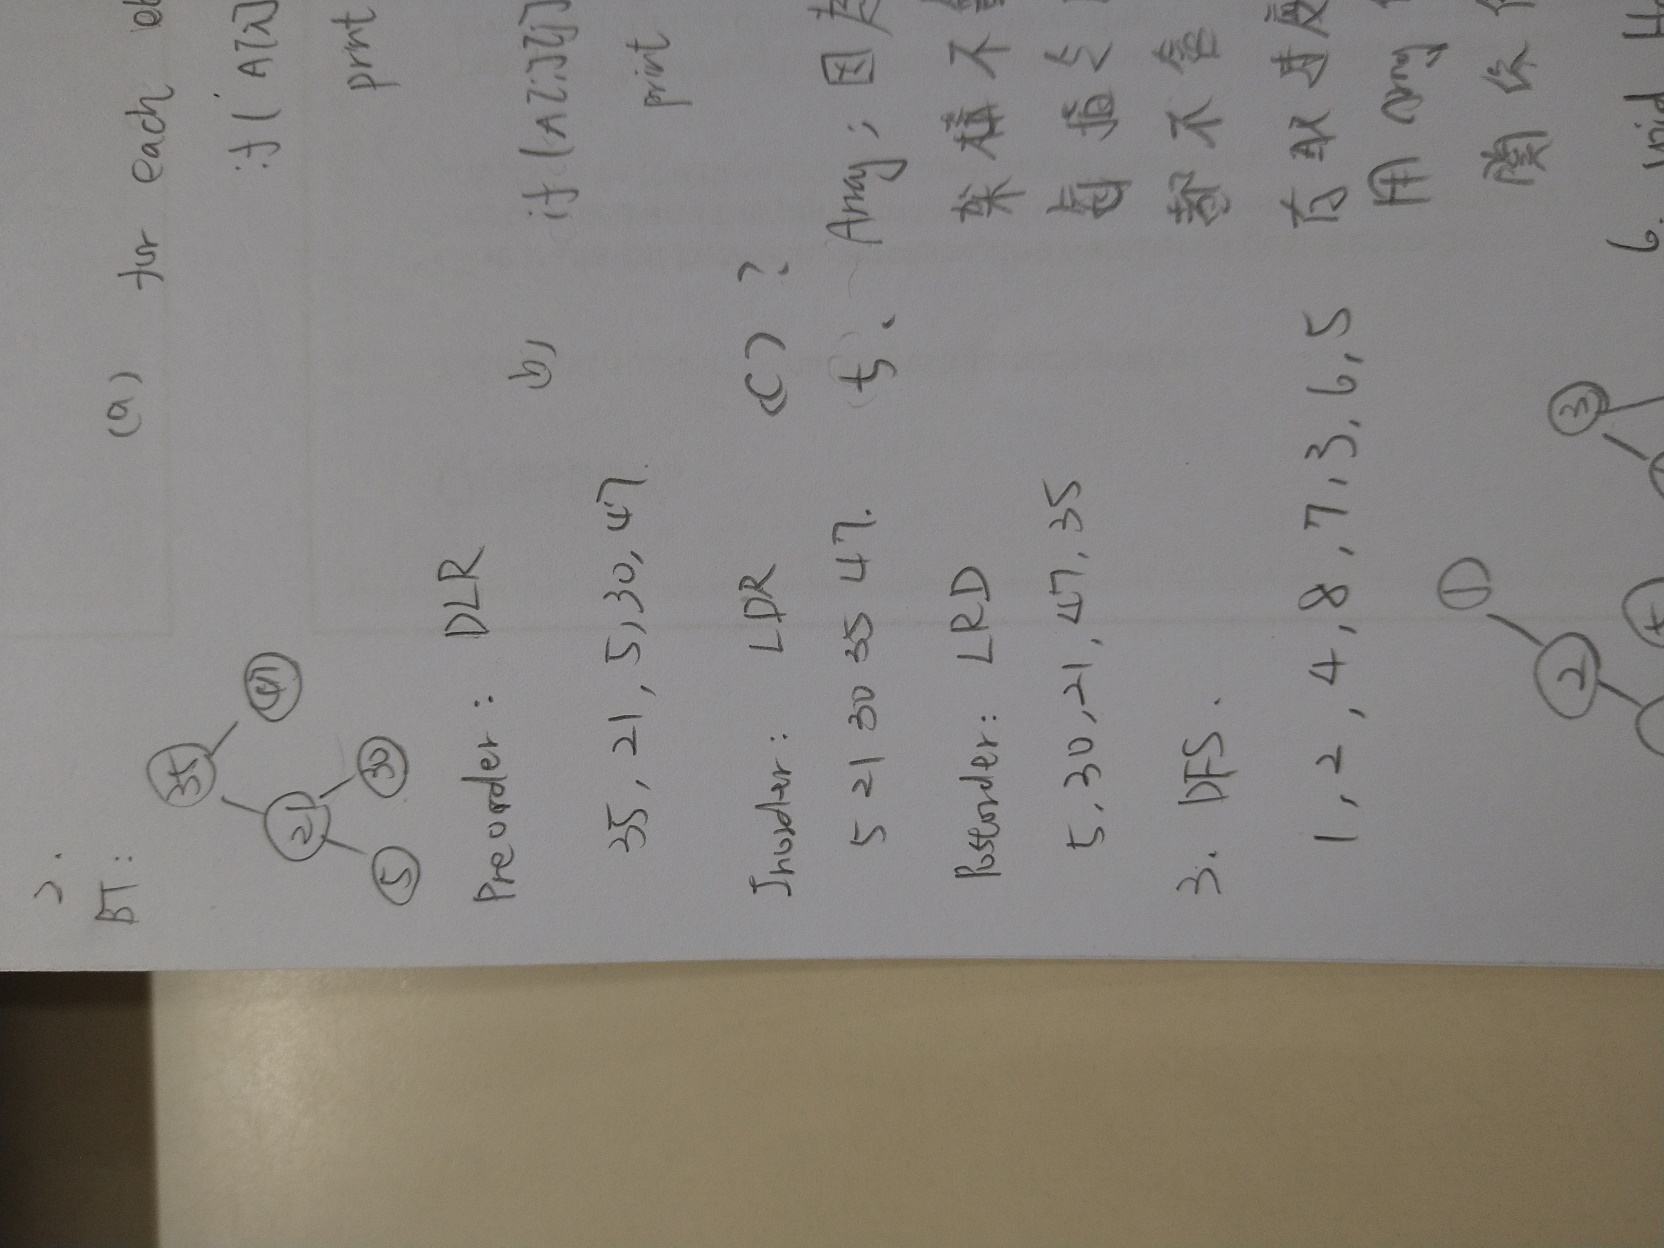 2.
BT:
35
47
21
30
5
Preorder: DLR
35, 21, 5, 30, 47.
Inorder: LDR
5 21 30 35 47.
Postorder: LRD
5, 30, 21, 47, 35
3. DFS.
1, 2, 4, 8, 7, 3, 6, 5
1
2
3
(a) for each
if (A[i]
print
b) if (A[i,j]
print
(c) ?
5. Array; 因為
某構不
每個
都不含
存取
用 array
關係
6. void